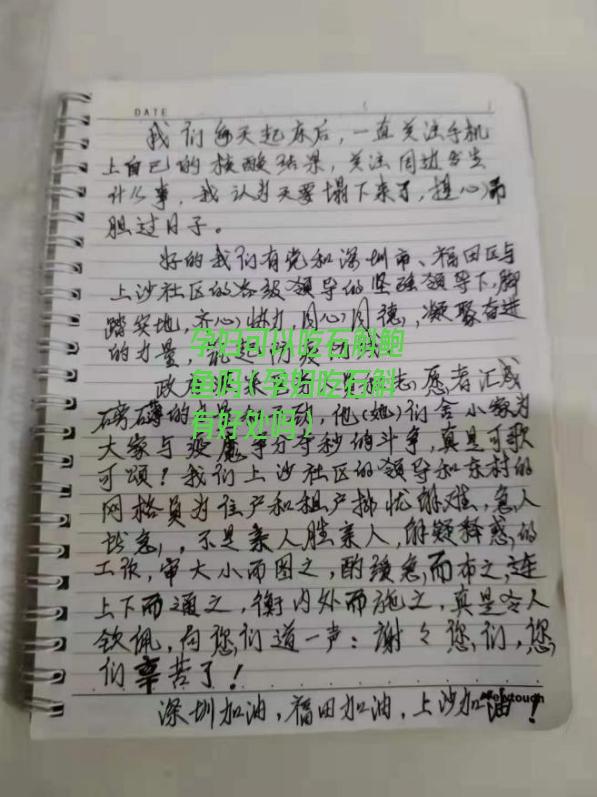 DATE
我们每天起床后，一直关注手机
上自己的核酸结果，关注周边发生
什么事，我认为天要塌下来了，提心而
胆过日子。
好的我们有党和深圳市、福田区与
上沙社区的各级领导的坚强领导下，脚
踏实地，齐心协力，同心同德，凝聚奋进
的力量，
孕妇可以吃石斛鲍
鱼吗(孕妇吃石斛
有好处吗)
政 志愿者汇成
磅礴的 他(她)们舍小家为
大家与疫魔争分夺秒的斗争，真是可歌
可颂！我们上沙社区的领导和东村的
网格员为住户和租户排忧解难，急人
所急，不是亲人胜亲人，解疑释惑的
工作，审大小而图之，酌缓急而布之，连
上下而通之，衡内外而施之，真是令人
钦佩，向您们道一声：谢谢您们，您
们辛苦了！
深圳加油，福田加油，上沙加油！